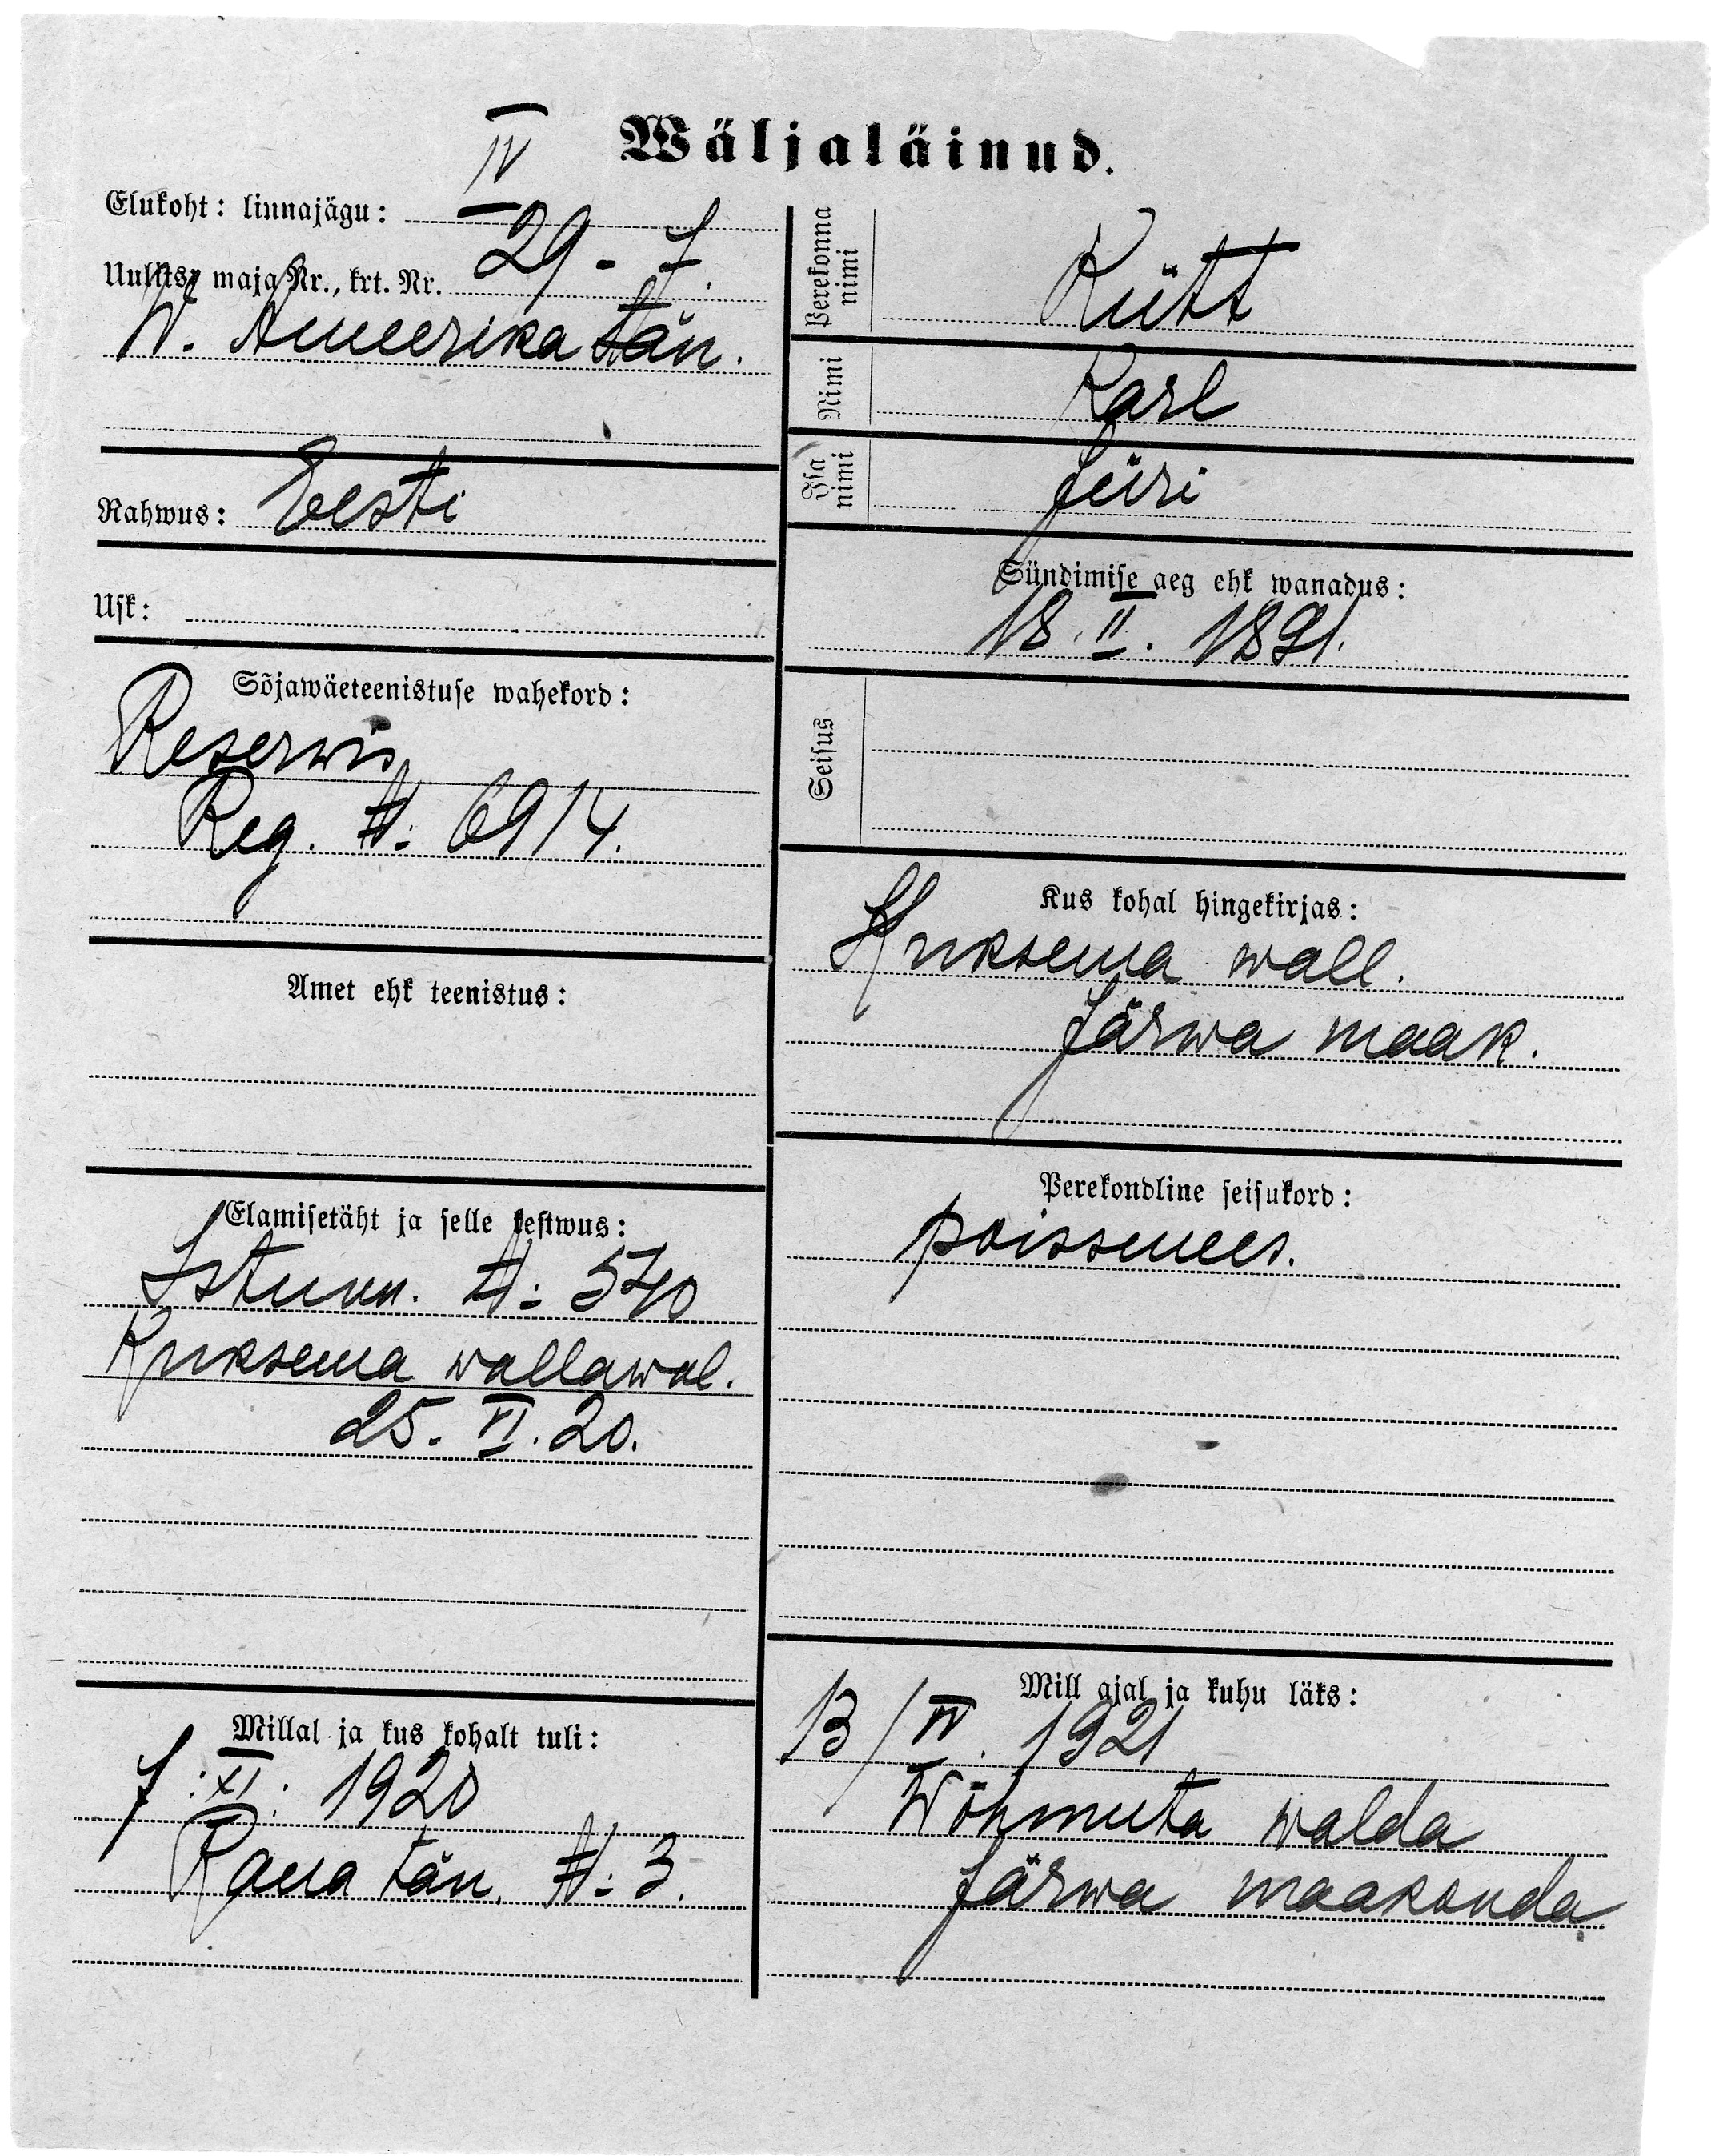 Wäljaläinud.
Elukoht: linnajägu: IV
Uulits, maja Nr., krt. Nr. 29 - 7.
W. Ameerika tän.
Rahwus: Eesti
Usk:
Sõjawäeteenistuse wahekord:
Reserwis
Reg. №: 6914.
Amet ehk teenistus:
Elamisetäht ja selle kestwus:
Istunn. №: 540
Kuksema wallawal.
25. VI. 20.
Millal ja kus kohalt tuli:
7. XI. 1920
Raua tän. №: 3.
Perekonna nimi
Kütt
Nimi
Karl
Isa nimi
Jüri
Sündimise aeg ehk wanadus:
18. II. 1891.
Seisus
Kus kohal hingekirjas:
Kuksema wall.
Järwa maak.
Perekondline seisukord:
poissmees.
Mill ajal ja kuhu läks:
13/IV. 1921
Wõhmuta walda
Järwa maakonda